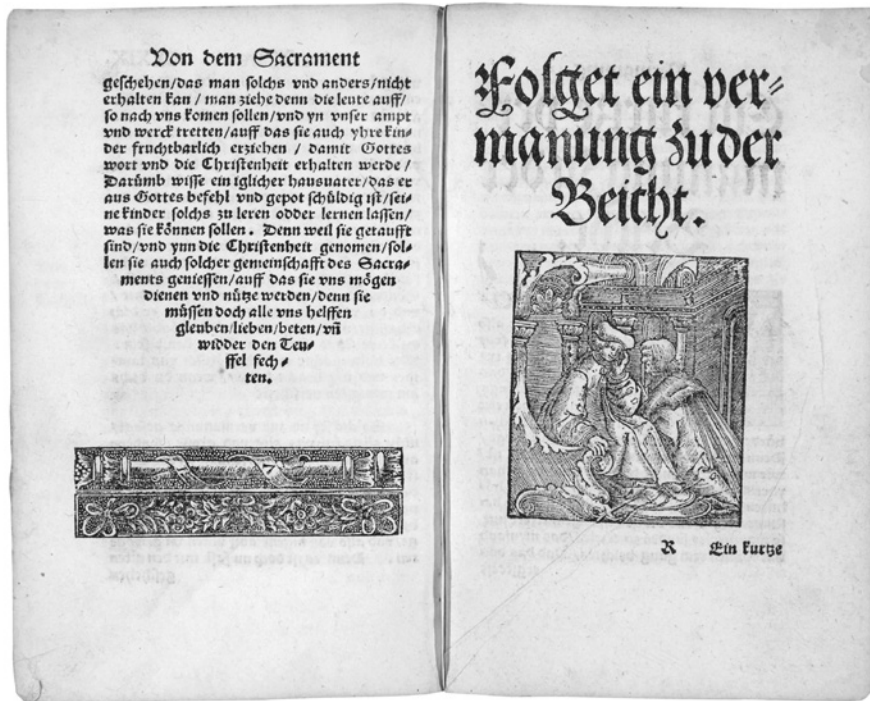 Von dem Sacrament
geschehen/das man solchs vnd anders/nicht
erhalten kan / man ziehe denn die leute auff/
so nach vns komen sollen/vnd yn vnser ampt
vnd werck tretten/auff das sie auch yhre kin⸗
der fruchtbarlich erziehen / damit Gottes
wort vnd die Christenheit erhalten werde /
Darümb wisse ein iglicher hausuater/das er
aus Gottes befehl vnd gepot schüldig ist/sei⸗
ne kinder solchs zu leren odder lernen lassen/
was sie können sollen. Denn weil sie getaufft
sind/vnd ynn die Christenheit genomen/sol⸗
len sie auch solcher gemeinschafft des Sacra⸗
ments geniessen/auff das sie vns mögen
dienen vnd nütze werden/denn sie
müssen doch alle vns helffen
gleuben/lieben/beten/vñ
widder den Teu⸗
ffel fech⸗
ten.
Folget ein ver⸗
manung zu der
Beicht.
R Ein kurtze